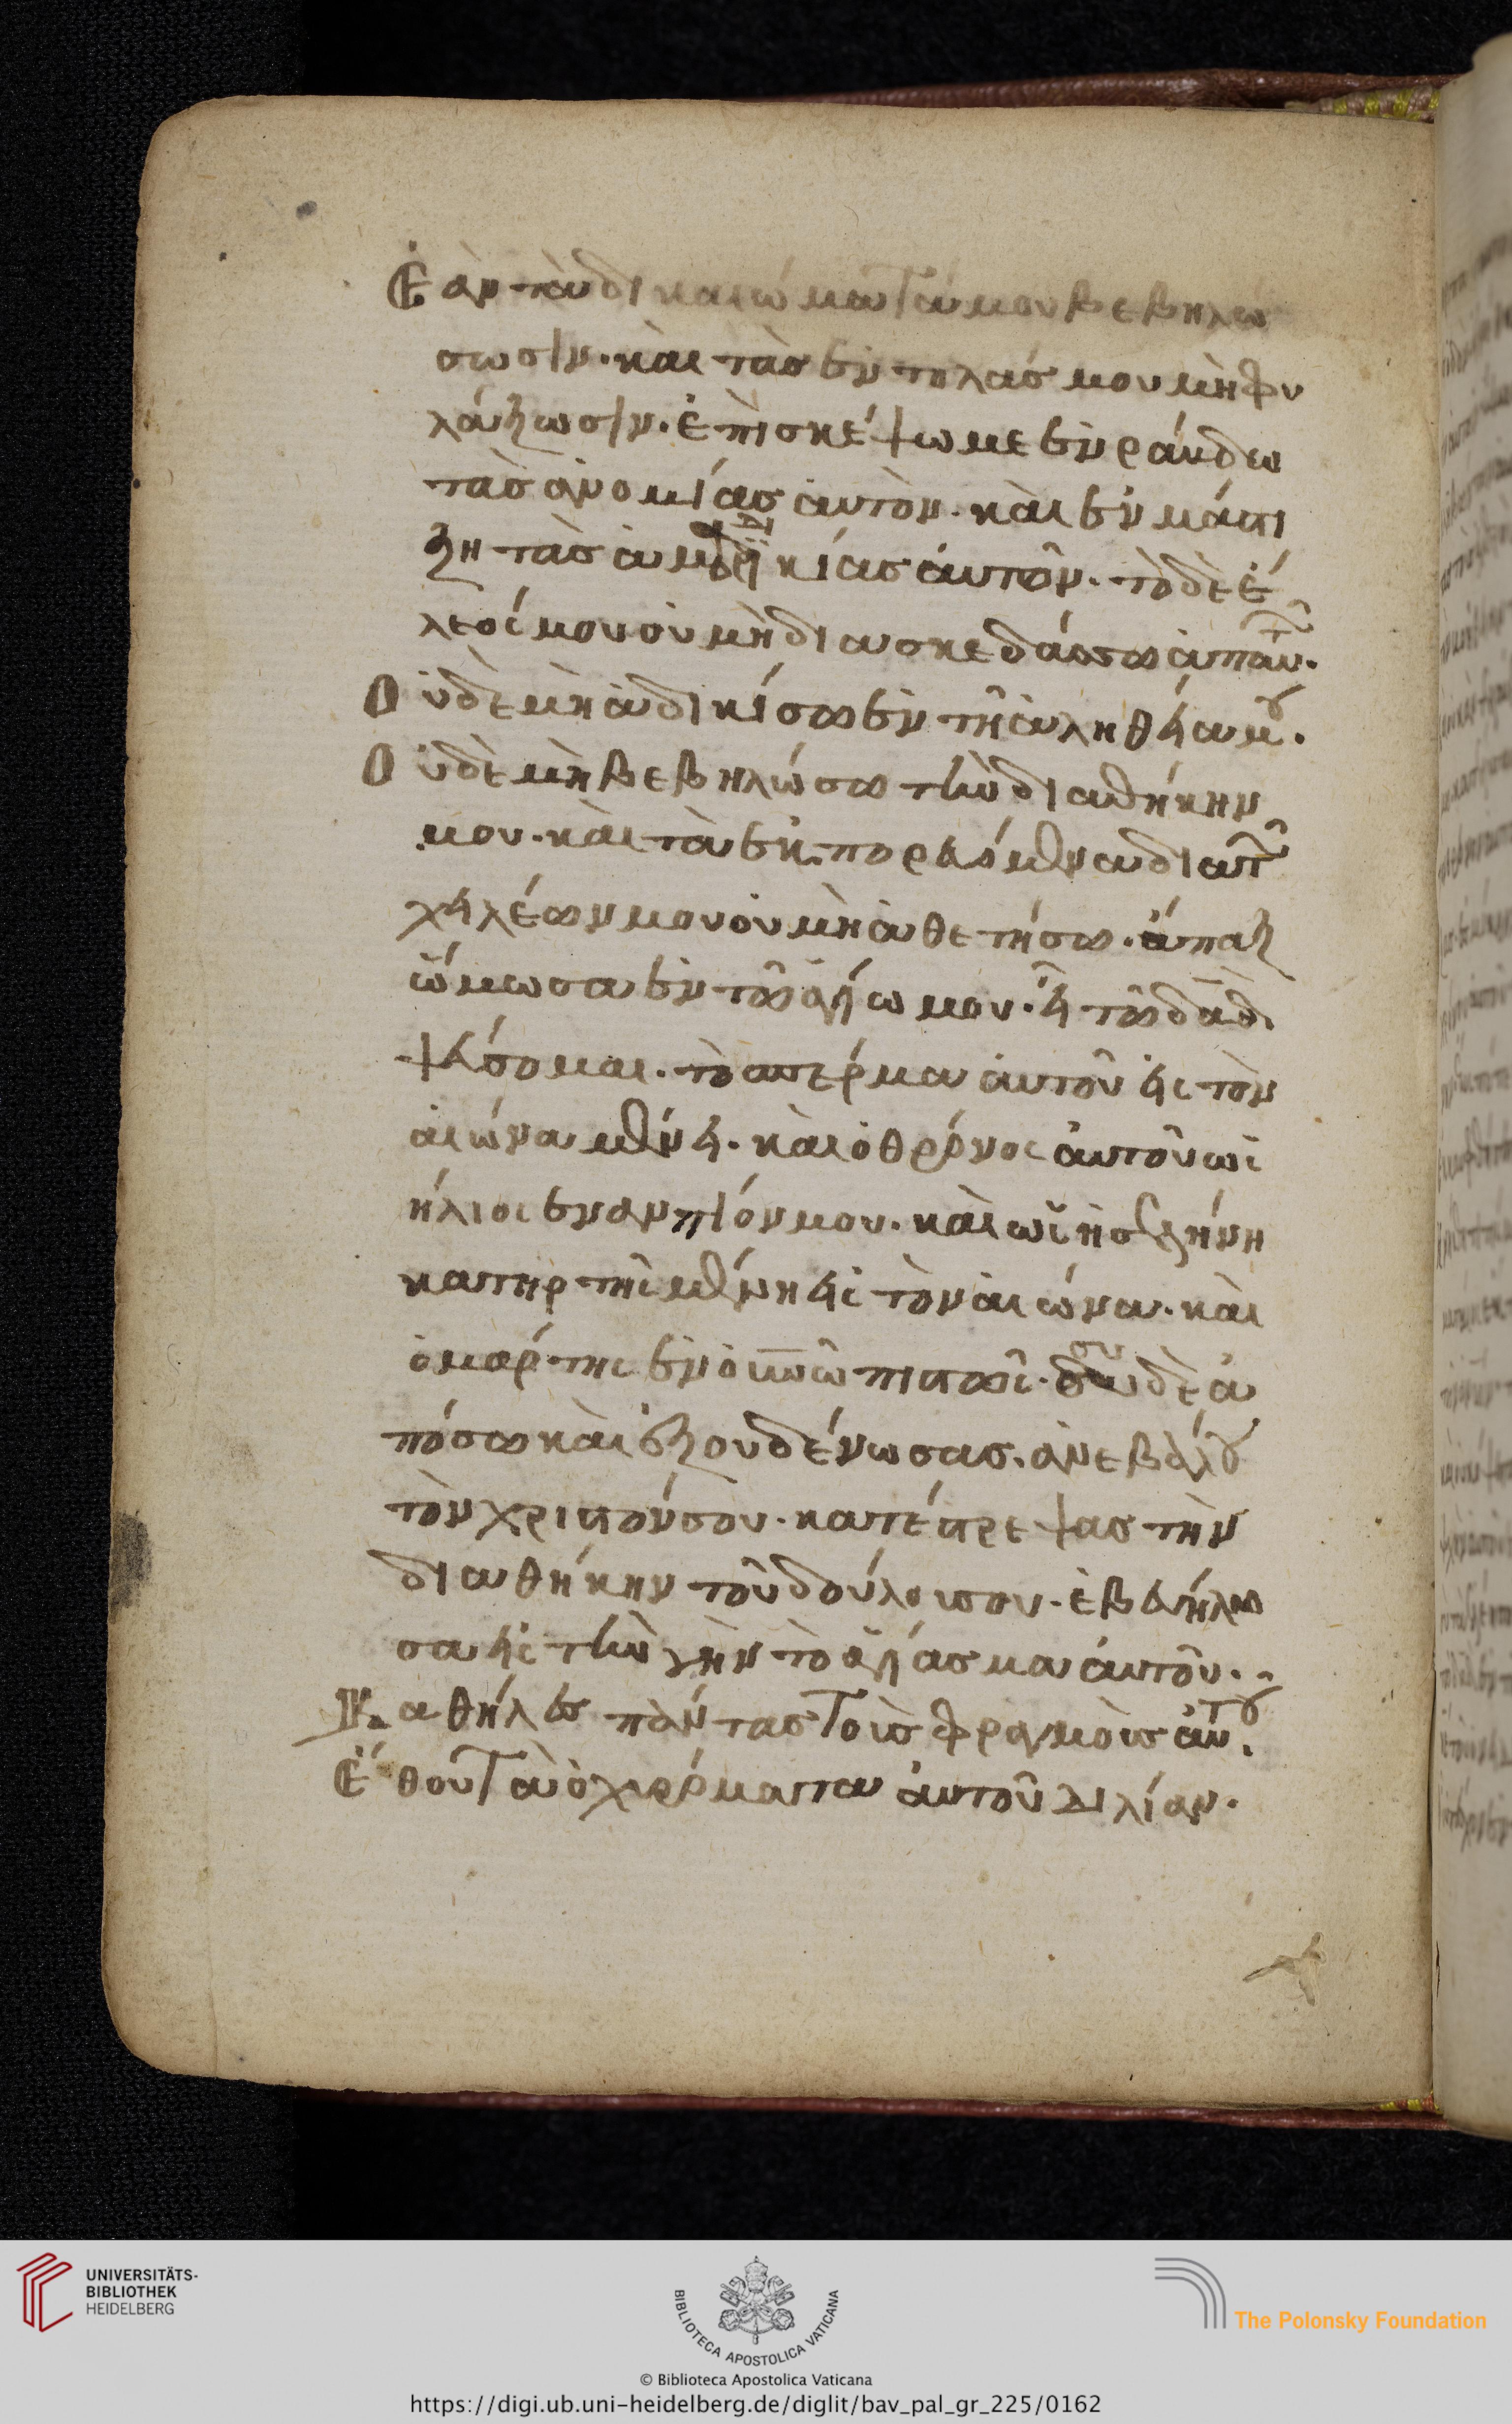 Ἐὰν τὰ δικαιώματά μου βεβηλώ
σωσιν. κὰι τὰσ ἐντολάσ μου μὴ φυ
λάξωσιν. ἐπισκέψωμε ἐν ράυδω
τὰσ ἀνομίασ ἀυτὸν. κὰι ἐν μάστι
ξη τὰσ ἀδικίασ ἀυτῶν. τὸ δὲ ἔ
λεόσ μου ου μὴ διασκεδάσω ἀπ αυτ.
Ουδὲ μὴ ἀδικίσω ἐν τῆ ἀληθεία μου.
Ουδὲ μὴ βεβηλώσω τὴν διαθήκην
μου. κὰι τὰ ἐκπορευόμενα διὰ τῶ
χειλέων μου ου μὴ ἀθετήσω. ἅπαξ
ὤμωσα ἐν τῶ ἁγίω μου. εἰ τῶ δαδ
ψεύσομαι. τὸ σπέρμα ἀυτοῦ εἰς τὸν
ἀιώνα μένει. κὰι ὁ θρόνος ἀυτοῦ ὡς
ήλιος εναντίόν μου. κὰι ὡς ἡ σελήνη
κατηρτησμένη εἰς τὸν ἀιώνα. κὰι
ὁ μάρτης ἐν ὀυνῶ πιστῶς. συ δὲ ἀ
πόσω κὰι ἐξουδένωσας. ἀνεβάλου
τὸν χριστόν σου. κατέστρεψας τὴν
διαθήκην τοῦ δούλου σου. ἐβευήλω
σα εἰς τὴν γὴν τὸ ἁγίασμα ἀυτοῦ.
Καθήλες πάντας τοὺς φραγμοὺς ἀυτου.
Ἔθου τὰ ὀχυρόματα ἀυτοῦ διλίαν.
UNIVERSITÄTS-
BIBLIOTHEK
HEIDELBERG
BIBLIOTECA APOSTOLICA VATICANA
The Polonsky Foundation
© Biblioteca Apostolica Vaticana
https://digi.ub.uni-heidelberg.de/diglit/bav_pal_gr_225/0162